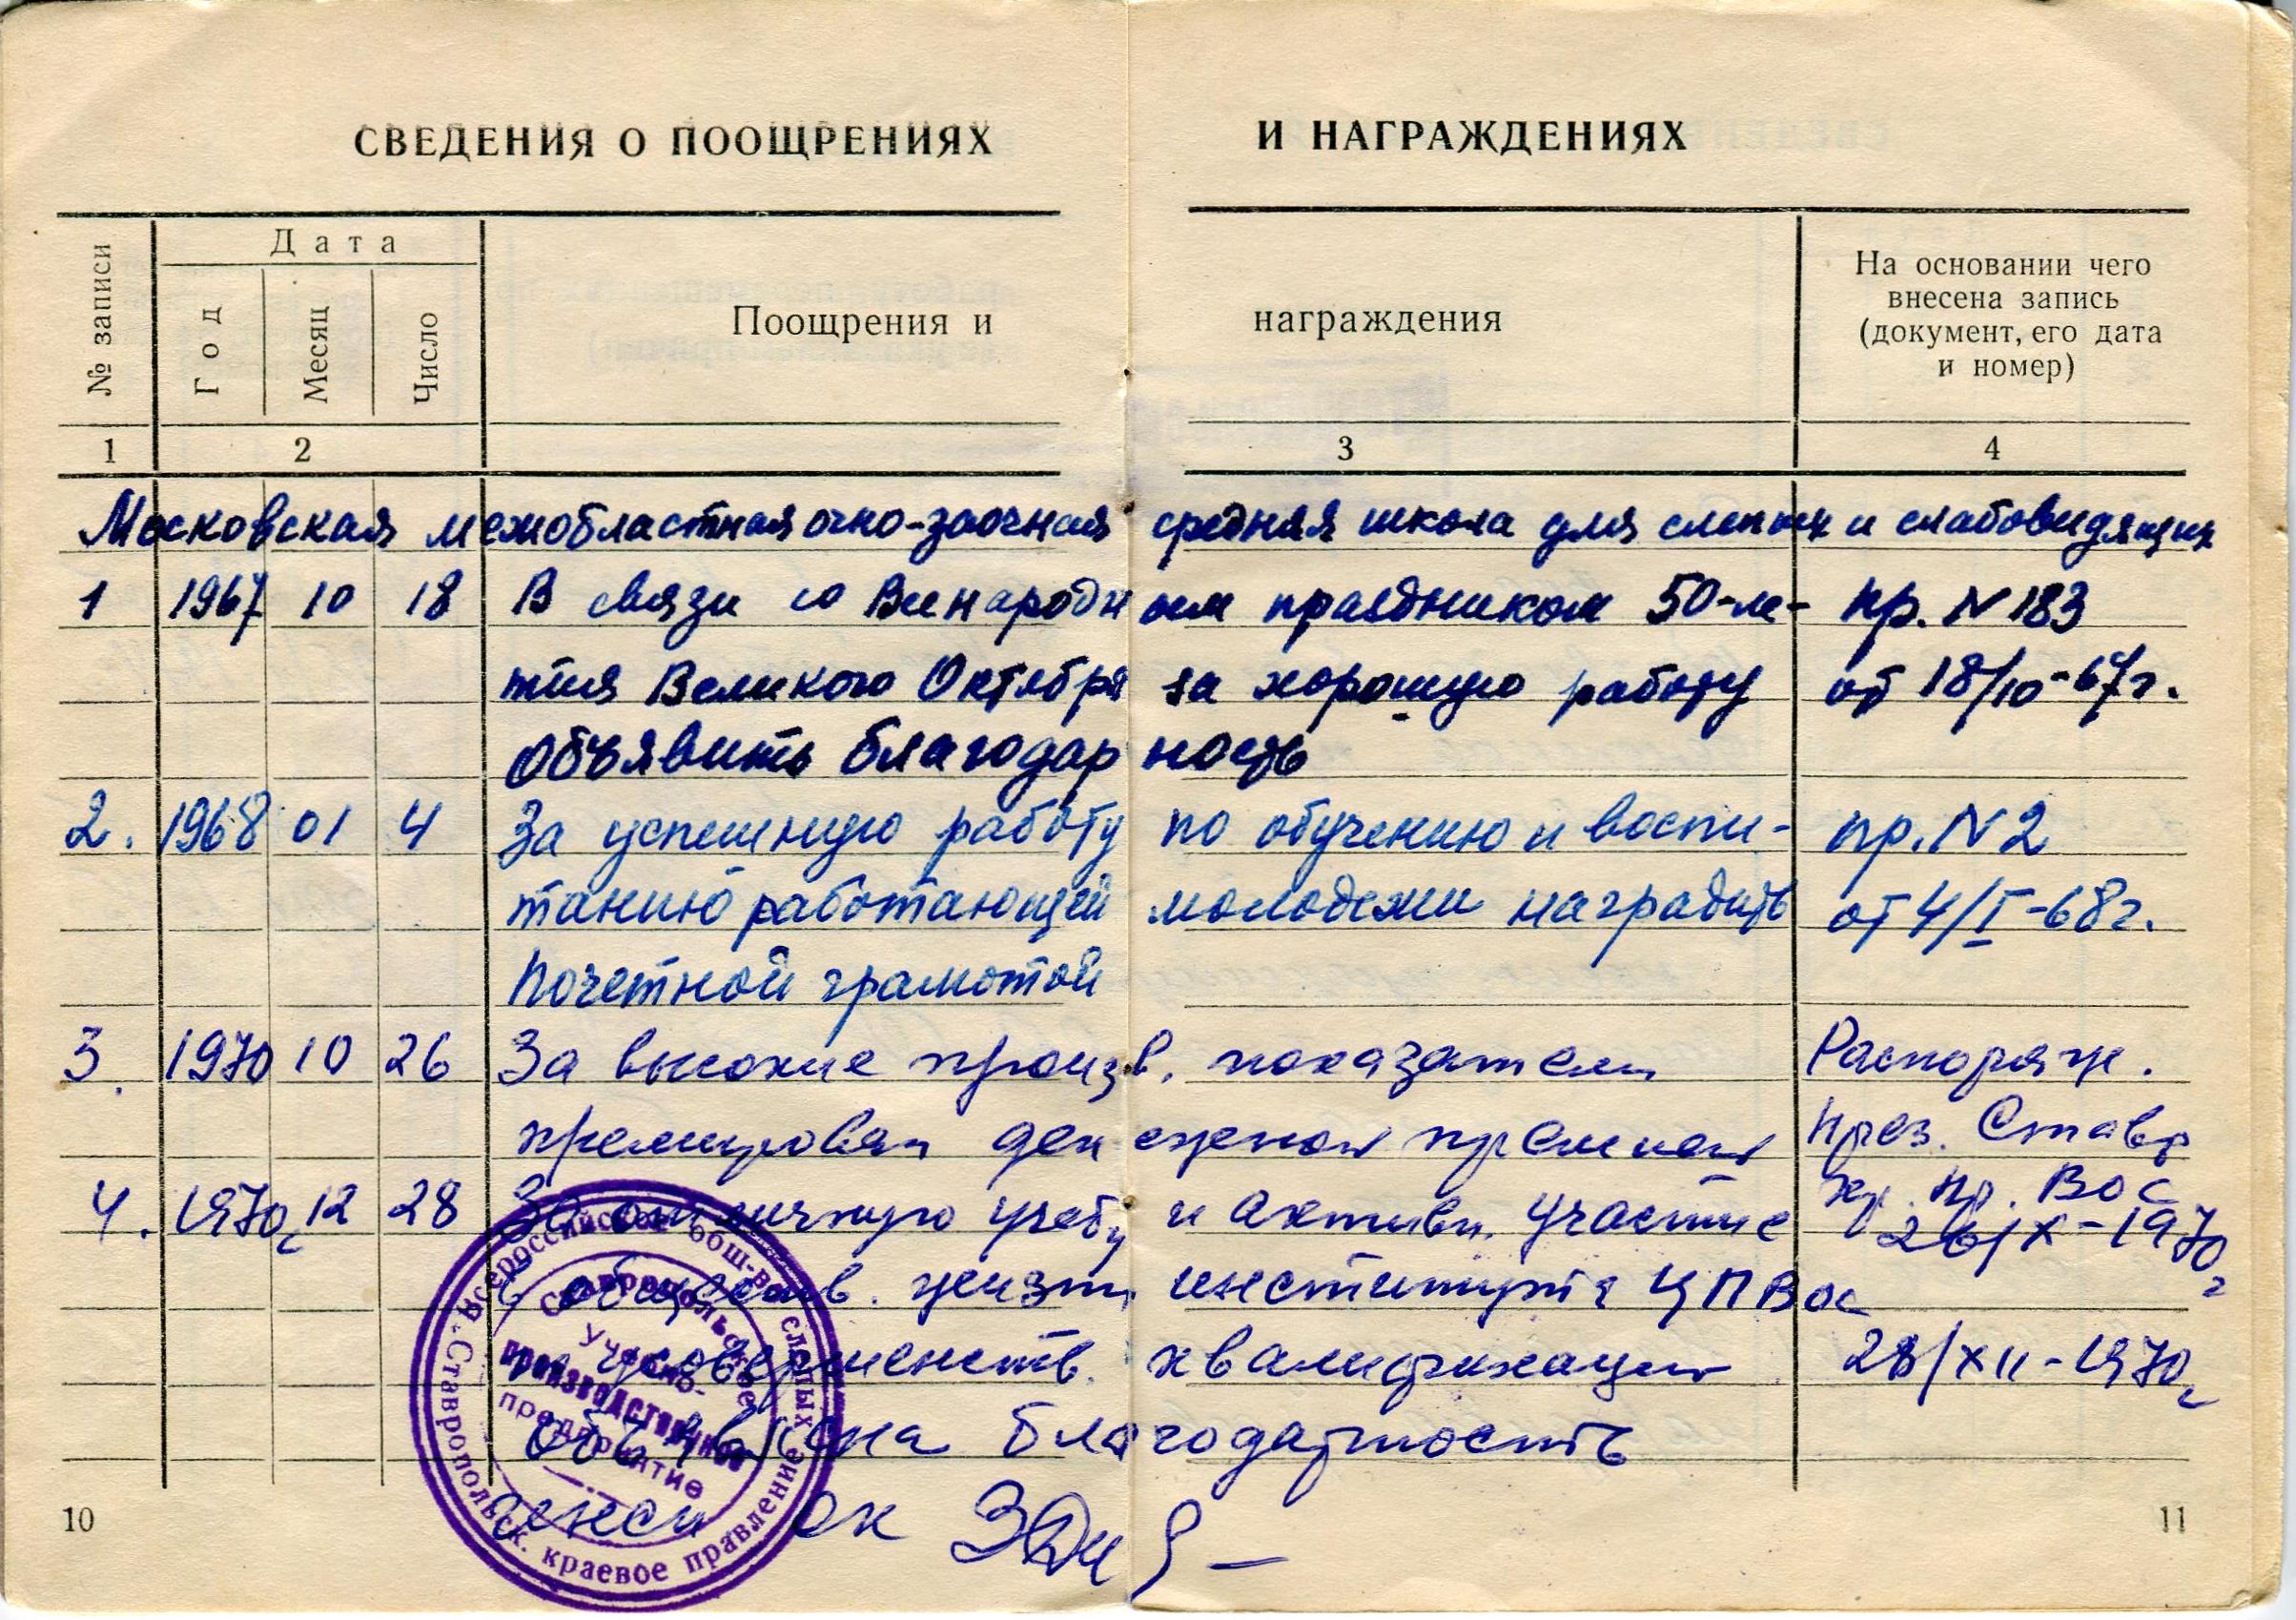 СВЕДЕНИЯ О ПООЩРЕНИЯХ И НАГРАЖДЕНИЯХ
№ записи
Дата
Год
Месяц
Число
Поощрения и награждения
На основании чего
внесена запись
(документ, его дата
и номер)
1 2 3 4
Московская межобластная очно-заочная средняя школа для слепых и слабовидящих
1 1967 10 18 В связи со Всенародным праздником 50-ле- пр. N 183
тия Великого Октября за хорошую работу от 18/10-67г.
Объявить благодарность
2. 1968 01 4 За успешную работу по обучению и воспи- пр. N 2
танию работающей молодежи наградить от 4/I-68г.
Почетной грамотой
3. 1970 10 26 За высокие произв. показатели Распоряж.
премирован денежной премией През. Ставр
кр. пр. ВОС
26/X-1970г
4. 1970г 12 28 За отличную учебу и активн. участие
в обществ. жизни института ЦПВос
по усовершенств. квалификации 28/XII-1970г
объявлена благодарность
ок
Всероссийское общ-во слепых
Ставропольск. краевое правление
Ставропольское
Учебно-
производственное
предприятие
10
11